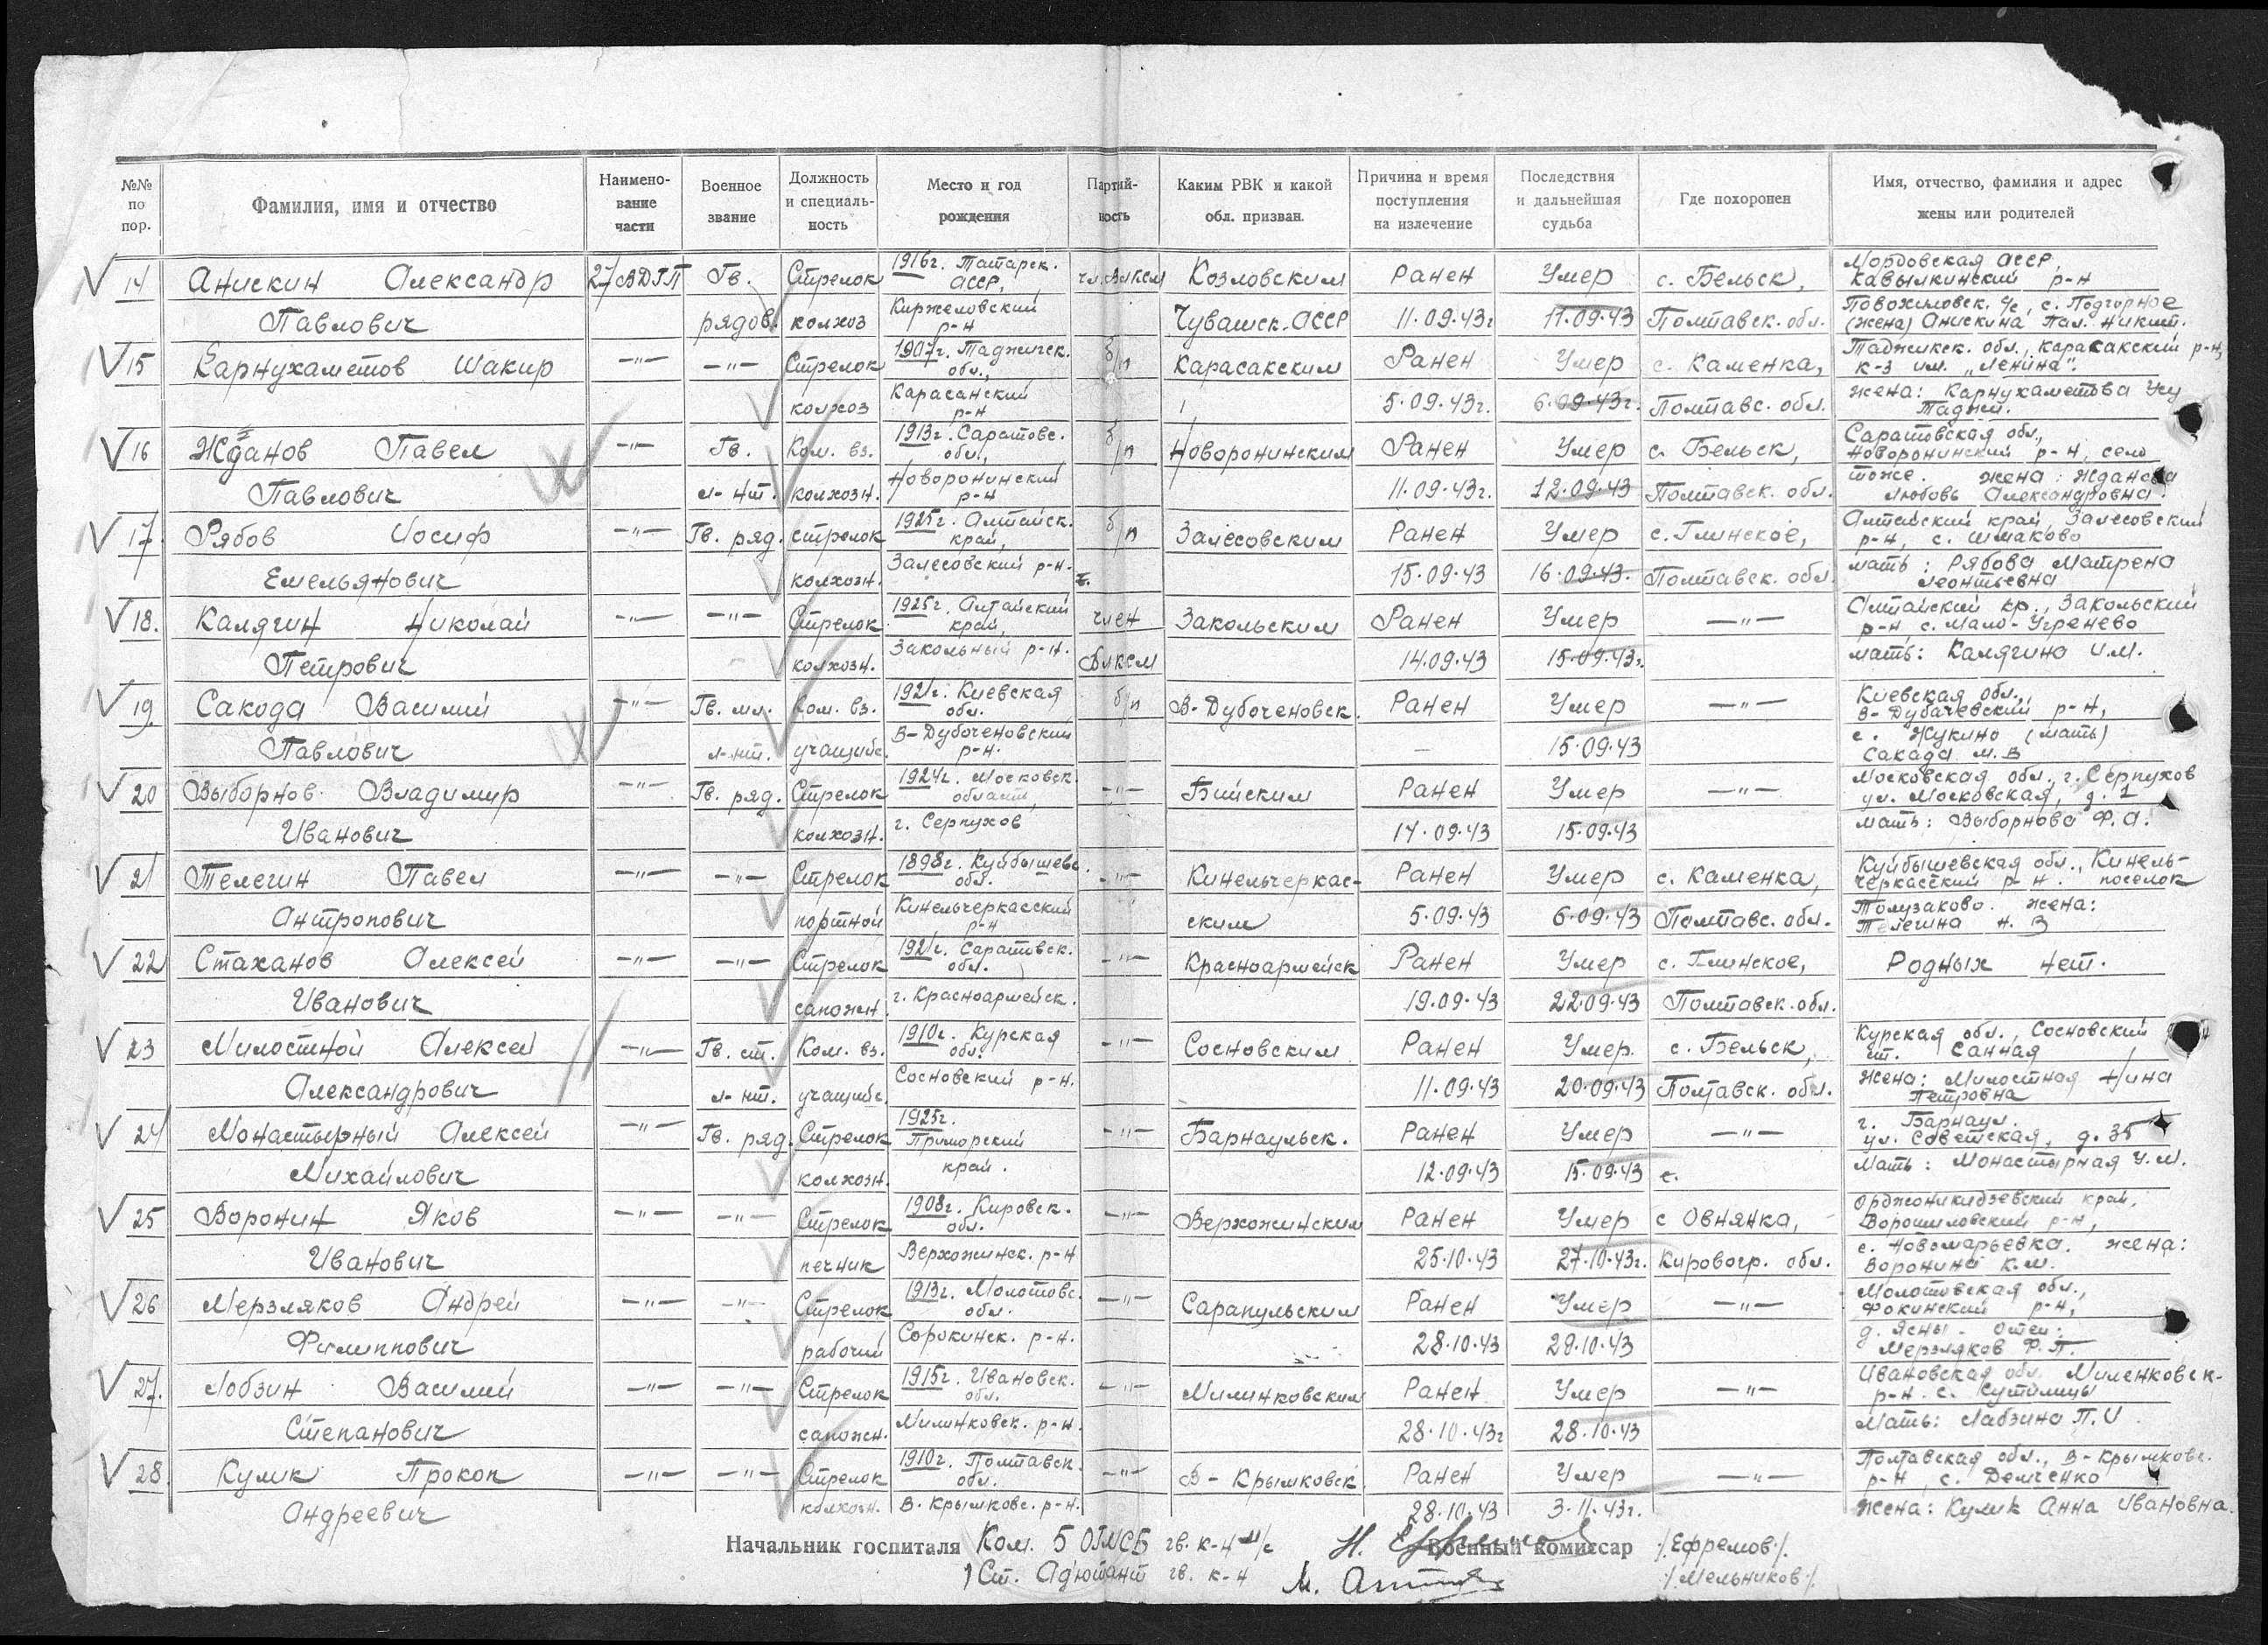 №№ по пор.
Фамилия, имя и отчество
Наимено-вание части
Военное звание
Должность и специаль-ность
Место и год рождения
Партий-ность
Каким РВК и какой обл. призван.
Причина и время поступления на излечение
Последствия и дальнейшая судьба
Где похоронен
Имя, отчество, фамилия и адрес жены или родителей
14 Анискин Александр 27 ВДГП Гв. Стрелок 1916г. Татарск. АССР, чл. ВЛКСМ Козловским Ранен Умер с. Бельск, Мордовская АССР, Кавылкинский р-н
Павлович рядов. колхоз Киржеловский р-н Чувашск. АССР 11.09.43г 11.09.43 Полтавск. обл. с. Подгорное (жена) Анискина Пал. Никит.
15 Карнухаметов Шакир —"— —"— Стрелок 1907г. Таджикск. обл., б/п Карасакским Ранен Умер с. Каменка, Таджикск. обл., Каракакский р-н, к-з им. „Ленина".
колхоз Карасанский р-н 5.09.43г. 6.09.43г. Полтавс. обл. жена: Карнухаметова
16 Жданов Павел —"— Гв. Ком. вз. 1913г. Саратовс. обл., б/п Новоронинским Ранен Умер с. Бельск, Саратовская обл., Новоронинский р-н, село
Павлович л-нт. колхозн. Новоронинский р-н 11.09.43г. 12.09.43 Полтавск. обл. тоже. жена: Жданова Любовь Александровна.
17. Рябов Иосиф —"— Гв. ряд. стрелок 1925г. Алтайск. край, б/п Залесовским Ранен Умер с. Глинское, Алтайский край, Залесовский р-н, с. Шмаково
Емельянович колхозн. Залесовский р-н. 15.09.43 16.09.43. Полтавск. обл. мать: Рябова Матрена Леонтьевна
18. Калягин Николай —"— —"— Стрелок 1925г. Алтайский край, член Закольским Ранен Умер —"— Алтайский кр., Закольский р-н, с. Мало-Угренево
Петрович колхозн. Закольный р-н. ВЛКСМ 14.09.43 15.09.43г. мать: Калягина И.М.
19 Сакода Василий —"— Гв. мл. Ком. вз. 1921г. Киевская обл. б/п В-Дубоченовск. Ранен Умер —"— Киевская обл., В-Дубачевский р-н,
Павлович л-нт. учащийс. В-Дубоченовский р-н. — 15.09.43 с. Жукино (мать) Сакада М.В
20 Выборнов Владимир —"— Гв. ряд. Стрелок 1924г. Московск. область, —"— Бийским Ранен Умер —"— Московская обл., г. Серпухов ул. Московская, д. 1
Иванович колхозн. г. Серпухов 14.09.43 15.09.43 мать: Выборнова Ф.А.
21 Телегин Павел —"— —"— Стрелок 1898г. Куйбышевс. обл. —"— Кинельчеркас- Ранен Умер с. Каменка, Куйбышевская обл., Кинель-черкасский р-н. поселок
Антропович портной Кинельчеркасский р-н ским 5.09.43 6.09.43 Полтавс. обл. Толузаково. жена: Телегина Н. В
22 Стаханов Алексей —"— —"— Стрелок 1921г. Саратовск. обл. —"— Красноармейск Ранен Умер с. Глинское, Родных нет.
Иванович сапожн. г. Красноармейск. 19.09.43 22.09.43 Полтавск. обл.
23 Милостной Алексей —"— Гв. ст. Ком. вз. 1910г. Курская обл. —"— Сосновским Ранен Умер. с. Бельск, Курская обл., Сосновский ст. Санная
Александрович л-нт. учащийс. Сосновский р-н. 11.09.43 20.09.43 Полтавск. обл. жена: Милостная Нина Петровна
24 Монастырный Алексей —"— Гв. ряд. Стрелок 1925г. Приморский —"— Барнаульск. Ранен Умер —"— г. Барнаул. ул. Советская, д. 35
Михайлович колхозн. край. 12.09.43 15.09.43 с. Мать: Монастырная У.М.
25 Воронин Яков —"— —"— Стрелок 1908г. Кировск. обл. —"— Верхожинским Ранен Умер с Овнянка, Орджоникидзевский край, Ворошиловский р-н,
Иванович печник Верхожинск. р-н 25.10.43 27.10.43г. Кировогр. обл. с. Новомарьевка. жена: Воронина К.М.
26 Мерзляков Андрей —"— —"— Стрелок 1913г. Молотовс. обл. —"— Сарапульским Ранен Умер —"— Молотовская обл., Фокинский р-н,
Филиппович рабочий Сорокинск. р-н. 28.10.43 29.10.43 д. Ясны. Отец: Мерзляков Ф.П.
27. Лобзин Василий —"— —"— Стрелок 1915г. Ивановск. обл. —"— Милинковским Ранен Умер —"— Ивановская обл. Миленковск- р-н. с. Кутилицы
Степанович сапожн. Милинковск. р-н. 28.10.43г 28.10.43 Мать: Лабзина П.И
28. Кулик Прокоп —"— —"— Стрелок 1910г. Полтавск. обл. —"— В-Крымковск. Ранен Умер —"— Полтавская обл., В-Крымковс. р-н, с. Демченко
Андреевич колхозн. В. Крымковс. р-н. 28.10.43 3.11.43г. жена: Кулик Анна Ивановна.
Начальник госпиталя Ком. 5 ОГМСБ гв. к-н м/с Н. Ефремов Военный комиссар /.Ефремов./.
Ст. Адютант гв. к-н /.Мельников./.